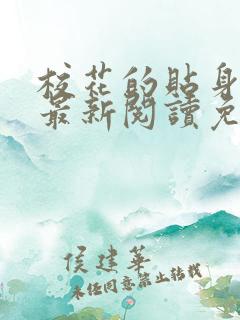 校花的貼身
最新閱讀免
侯建華
未经同意禁止转载